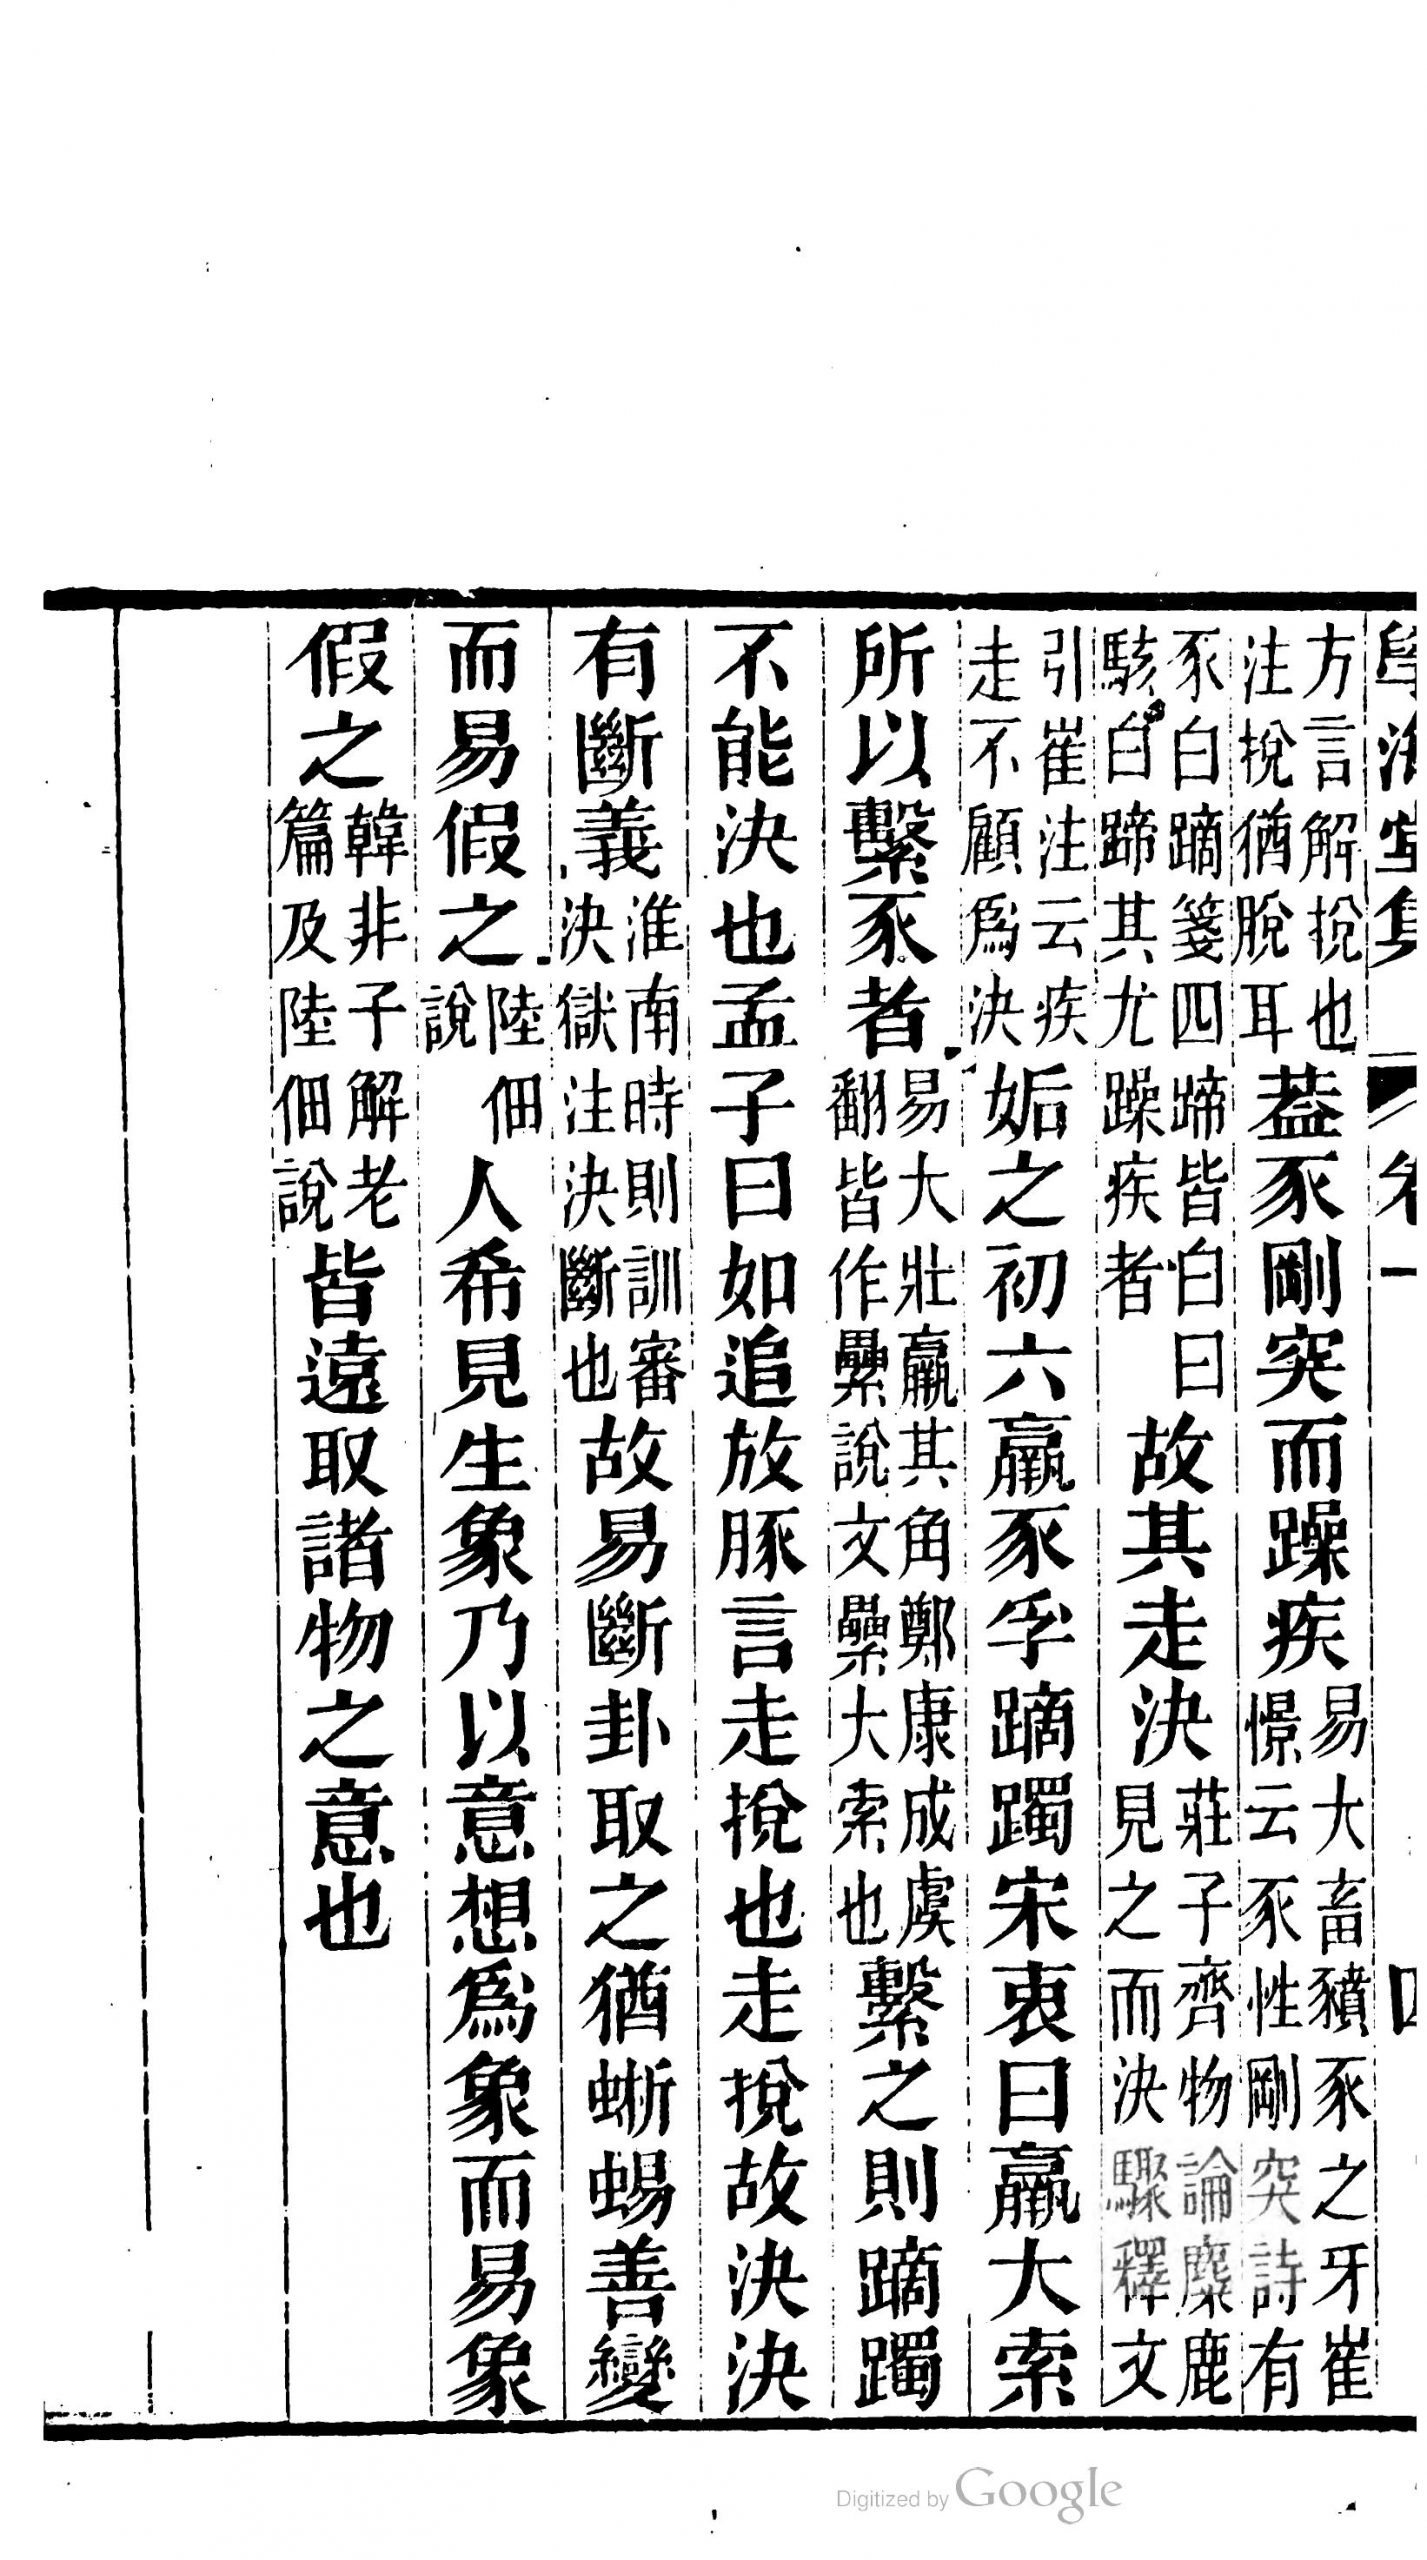 學海堂集 卷一 四
方言解挩也注挩猶脫耳葢豕剛突而躁疾易大畜豶豕之牙崔憬云豕性剛突詩有
豕白蹢箋四蹄皆白曰駭白蹄其尤躁疾者故其走決莊子齊物論麋鹿見之而決驟釋文
引崔注云疾走不顧爲決姤之初六羸豕孚蹢躅宋衷曰羸大索
所以繫豕者易大壯羸其角鄭康成虞翻皆作纍說文纍大索也繫之則蹢躅
不能決也孟子曰如追放豚言走挩也走挩故決決
有斷義淮南時則訓審決獄注決斷也故易斷卦取之猶蜥蜴善變
而易假之陸佃說人希見生象乃以意想爲象而易象
假之韓非子解老篇及陸佃說皆遠取諸物之意也
Digitized by Google